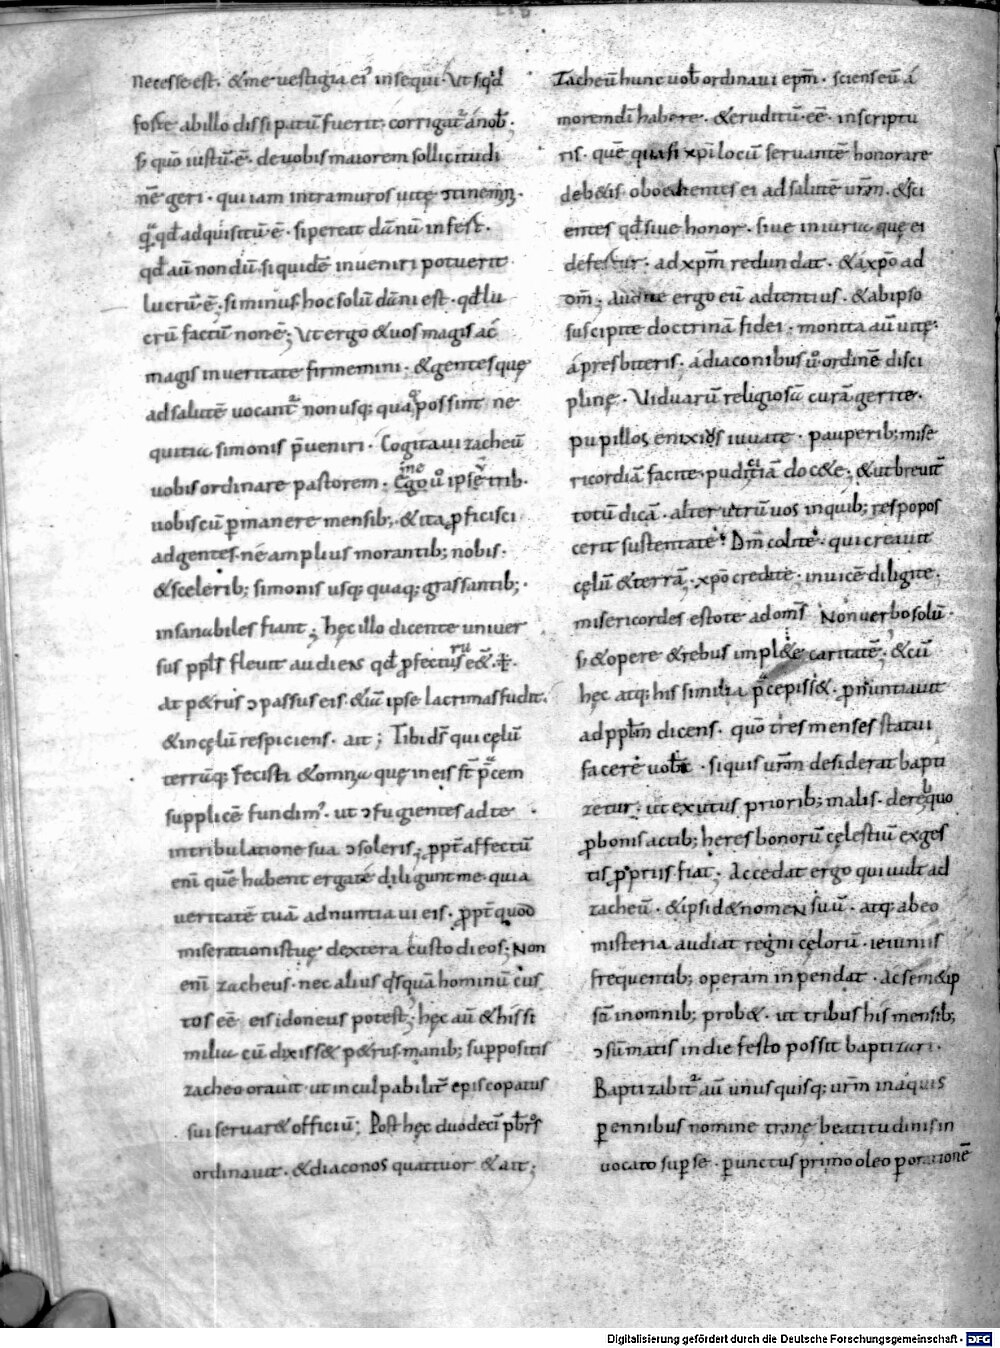 necesse est. & me uestigia ei᾽ insequi. Ut siqd̄
forte abillo dissipatū fuerit. corrigat᾽ anob̄.
s; quō iustū. ē. deuobis maiorem sollicitudi
nē geri. qui iam intra muros uitę ↄtinemī.
qa qd̄ adquisitū. ē. si pereat dānū infest.
qd̄ aū nondū. siquidē inueniri potuerit
lucrū. ē. si minus hoc solū dāni est. qd̄ lu
crū factū non. ē; Ut ergo & uos magis ac
magis in ueritate firmemini. & gentes quę
ad salutē uocant᾽ non usq; quaq; possint ne
quitia simonis p̄ueniri. Cogitaui zacheū
uobis ordinare pastorem. Ego ū ipse trib.
uobiscū p̱manere mensib;. & ita ꝓficisci
ad gentes. ne amplius morantib; nobis.
& scelerib; simonis usq; quaq; grassantib;.
insanabiles fiant; hęc illo dicente uniuer
sus ppl̄s fleuit audiens qd̄ ꝓfecturus e&.
At p&rus ↄpassus eis. &iā ipse lacrimas fudit.
& in cęlū respiciens. ait; Tibi dn̄r qui cęlū
terrūq; fecisti & omnia que in eis st̄ p̄cem
supplicē fundim᾽. ut ↄfugientes ad te
in tribulatione sua ↄsoleris; ꝓpt̄ affectū
enī quē habent erga te diligunt me. quia
ueritatē tuā adnuntiaui eis. ꝓpt̄ quod
miserationis tuę dextera custodi eos; Non
enī zacheus. nec alius qsquā hominū cus
tos eē eis idoneus potest; hęc aū & his si
milia cū dixiss& p&rus. manib; suppositis
zacheo orauit. ut inculpabilit᾽ episcopatus
sui seruar& officiū; Post hęc duodecī pb̄ros
ordinauit. & diaconos quattuor & ait;
Zacheū hunc uob̄ ordinaui ep̄m. sciens eū di
morem dī habere. & eruditū. eē. in scriptu
ris. quē quasi xp̄i locū seruantē honorare
deb&is oboedientes ei ad salutē ur̄m. & sci
entes qd̄ siue honor. siue iniuria quę ei
defertur. ad xp̄m redundat. & a xp̄o ad
dm̄; Audite ergo eū adtentius. & ab ipso
suscipite doctrinā fidei. monita aū uitę.
a presbiteris. a diaconibus ū ordinē disci
plinę. Uiduarū religiosā curā gerite.
pupillos enixius iuuate. pauperib; mise
ricordiā facite. pudicitiā doc&e. & ut breuit᾽
totū dicā. alterutrū uos in quib; res popos
cerit sustentate. Dm̄ colite. qui creauit
cęlū & terrā. xp̄o credite. inuicē diligite.
misericordes estote ad oms̄ Non uerbo solū.
s; & opere & rebus impl&e caritatē; & cū
hęc atq; his similia p̄cepiss&. pronuntiauit
ad ppl̄m dicens. quō tres menses statui
facere uob̄c. si quis ur̄m desiderat bapti
zetur. ut exutus priorib; malis. dereliquo
ꝓ bonis actib; heres bonorū cęlestiū ex ges
tis ꝓpriis fiat; Accedat ergo qui uult ad
zacheū. & ipsi d& nomen suū. atq; ab eo
misteria audiat regni cęlorū. ieiuniis
frequentib; operam inpendat. Ac sem&ip
sā in omnib; prob&. ut tribus his mensib;
ↄsūmatis in die festo possit baptizari.
Baptizabit᾽ aū unus quisq; ur̄m in aquis
p̱ennibus nomine trinę beatitudinis in
uocato sup̱ se. p̱unctus primo oleo p̱ orationē
Digitalisierung gefördert durch die Deutsche Forschungsgemeinschaft · DFG